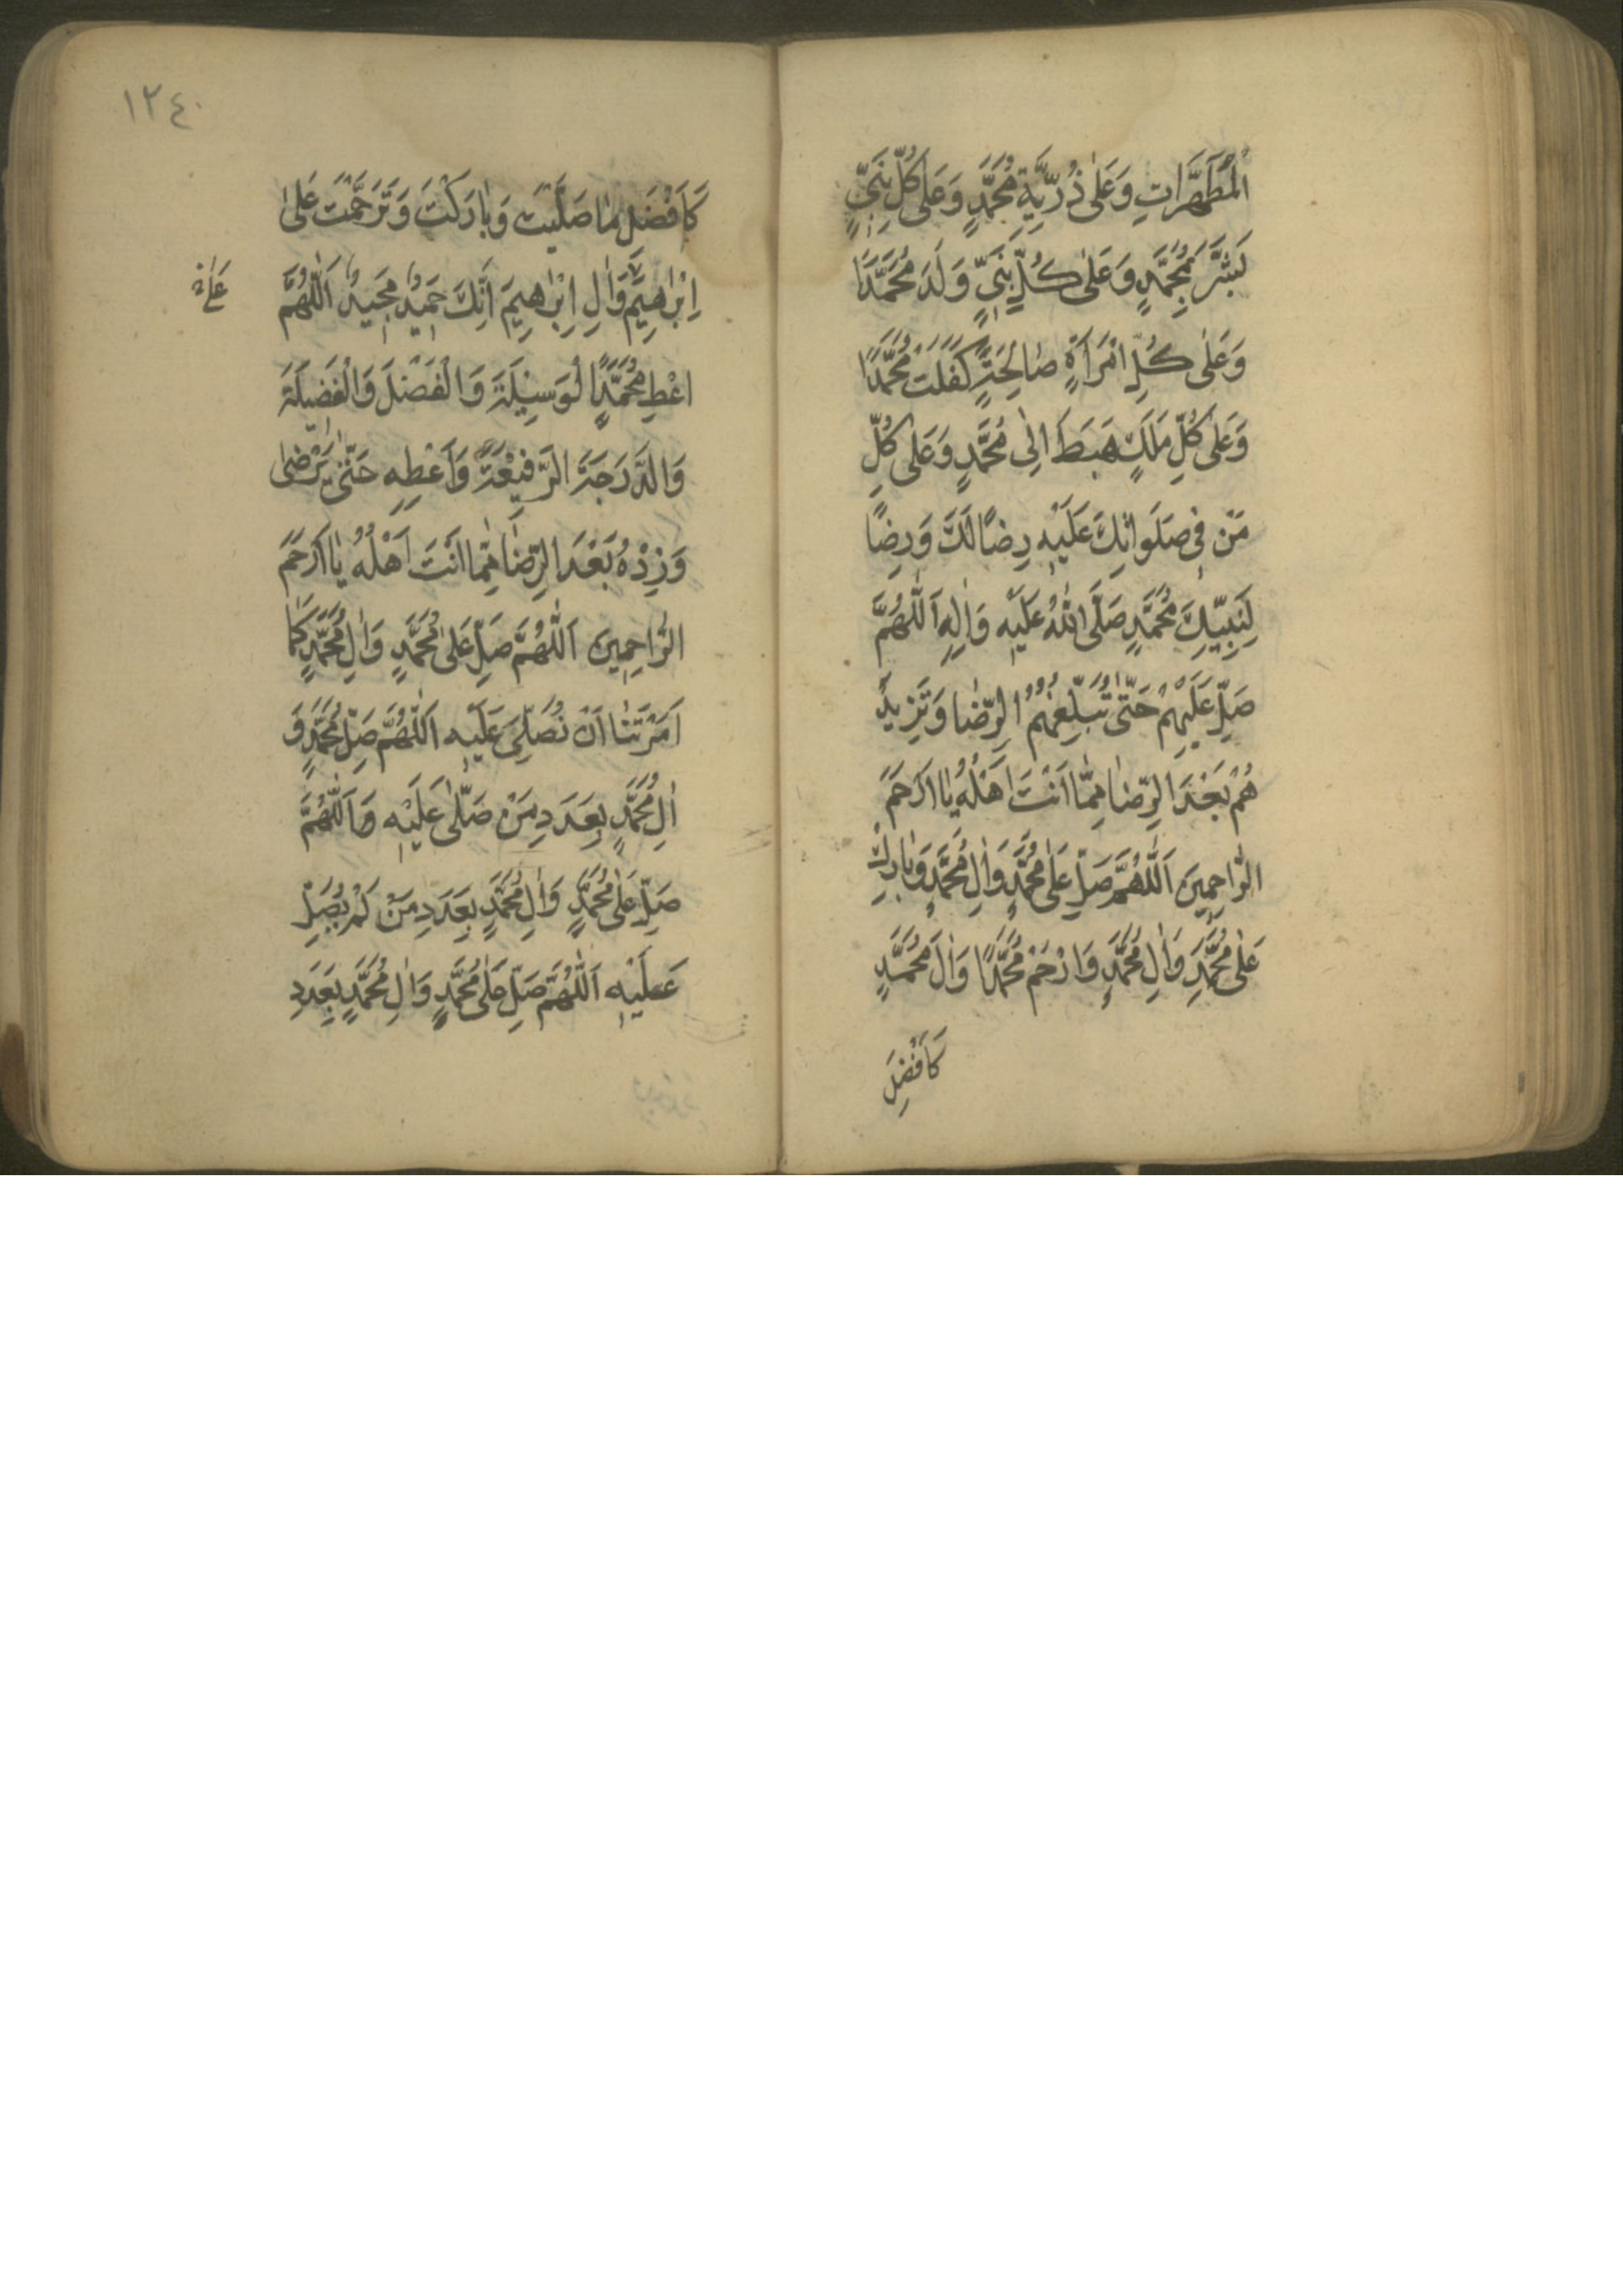 الْمُطَهَّرَاتِ وَعَلٰى ذُرِّيَّةِ مُحَمَّدٍ وَعَلٰى كُلِّ نَبِيٍّ
بَشَّرَ بِمُحَمَّدٍ وَعَلٰى كُلِّ نَبِيٍّ وَلَدَ مُحَمَّدًا
وَعَلٰى كُلِّ امْرَاَةٍ صَالِحَةٍ كَفَلَتْ مُحَمَّدًا
وَعَلٰى كُلِّ مَلَكٍ هَبَطَ اِلٰى مُحَمَّدٍ وَعَلٰى كُلِّ
مَنْ فِى صَلَوَاتِكَ عَلَيْهِ رِضًا لَكَ وَرِضًا
لِنَبِيِّكَ مُحَمَّدٍ صَلَّى اللّٰهُ عَلَيْهِ وَاٰلِهِ اَللّٰهُمَّ
صَلِّ عَلَيْهِمْ حَتّٰى تُبَلِّغَهُمُ الرِّضَا وَتَزِيدَ
هُمْ بَعْدَ الرِّضَا مِمَّا اَنْتَ اَهْلُهُ يَا اَرْحَمَ
الرَّاحِمِينَ اَللّٰهُمَّ صَلِّ عَلٰى مُحَمَّدٍ وَاٰلِ مُحَمَّدٍ وَبَارِكْ
عَلٰى مُحَمَّدٍ وَاٰلِ مُحَمَّدٍ وَارْحَمْ مُحَمَّدًا وَاٰلَ مُحَمَّدٍ
كَاَفْضَلِ
١٢٤٠
كَاَفْضَلِ مَا صَلَّيْتَ وَبَارَكْتَ وَتَرَحَّمْتَ عَلٰى
اِبْرٰهِيمَ وَاٰلِ اِبْرٰهِيمَ اِنَّكَ حَمِيدٌ مَجِيدٌ اَللّٰهُمَّ
اعْطِ مُحَمَّدًا الْوَسِيلَةَ وَالْفَضْلَ وَالْفَضِيلَةَ
وَالدَّرَجَةَ الرَّفِيعَةَ وَاَعْطِهِ حَتّٰى يَرْضٰى
وَزِدْهُ بَعْدَ الرِّضَا مِمَّا اَنْتَ اَهْلُهُ يَا اَرْحَمَ
الرَّاحِمِينَ اَللّٰهُمَّ صَلِّ عَلٰى مُحَمَّدٍ وَاٰلِ مُحَمَّدٍ كَمَا
اَمَرْتَنَا اَنْ نُصَلِّىَ عَلَيْهِ اَللّٰهُمَّ صَلِّ مُحَمَّدٍ وَ
اٰلِ مُحَمَّدٍ بِعَدَدِ مَنْ صَلّٰى عَلَيْهِ وَاَللّٰهُمَّ
صَلِّ عَلٰى مُحَمَّدٍ وَاٰلِ مُحَمَّدٍ بِعَدَدِ مَنْ لَمْ يُصَلِّ
عَلَيْهِ اَللّٰهُمَّ صَلِّ عَلٰى مُحَمَّدٍ وَاٰلِ مُحَمَّدٍ بِعَدَدِ